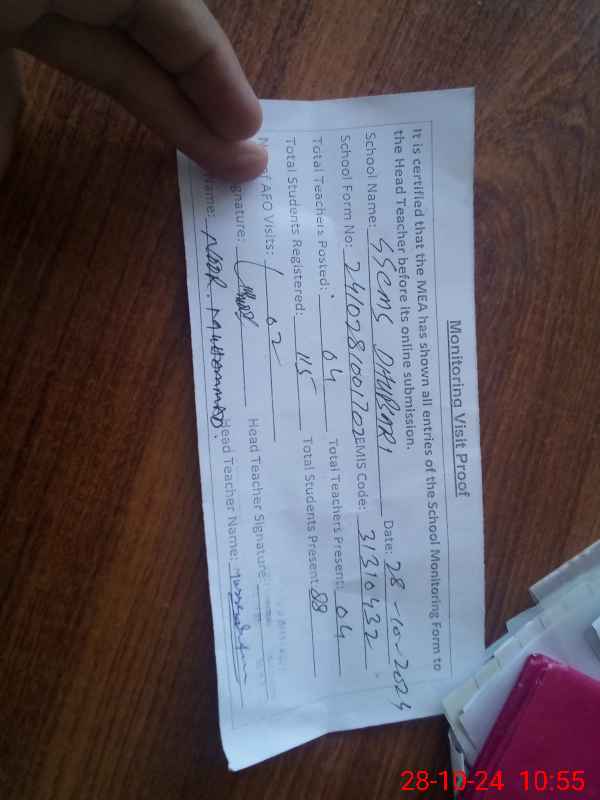 Monitoring Visit Proof
It is certified that the MEA has shown all entries of the School Monitoring Form to
the Head Teacher before its online submission.
School Name: GSCMS DHUBARI Date: 28-10-2024
School Form No: 2410281001702 EMIS Code: 31310432
Total Teachers Posted: 04 Total Teachers Present: 04
Total Students Registered: 115 Total Students Present: 88
of AFO Visits: 02
gnature: Head Teacher Signature:
Name: NOOR. MUHAMMAD. Head Teacher Name:
28-10-24 10:55